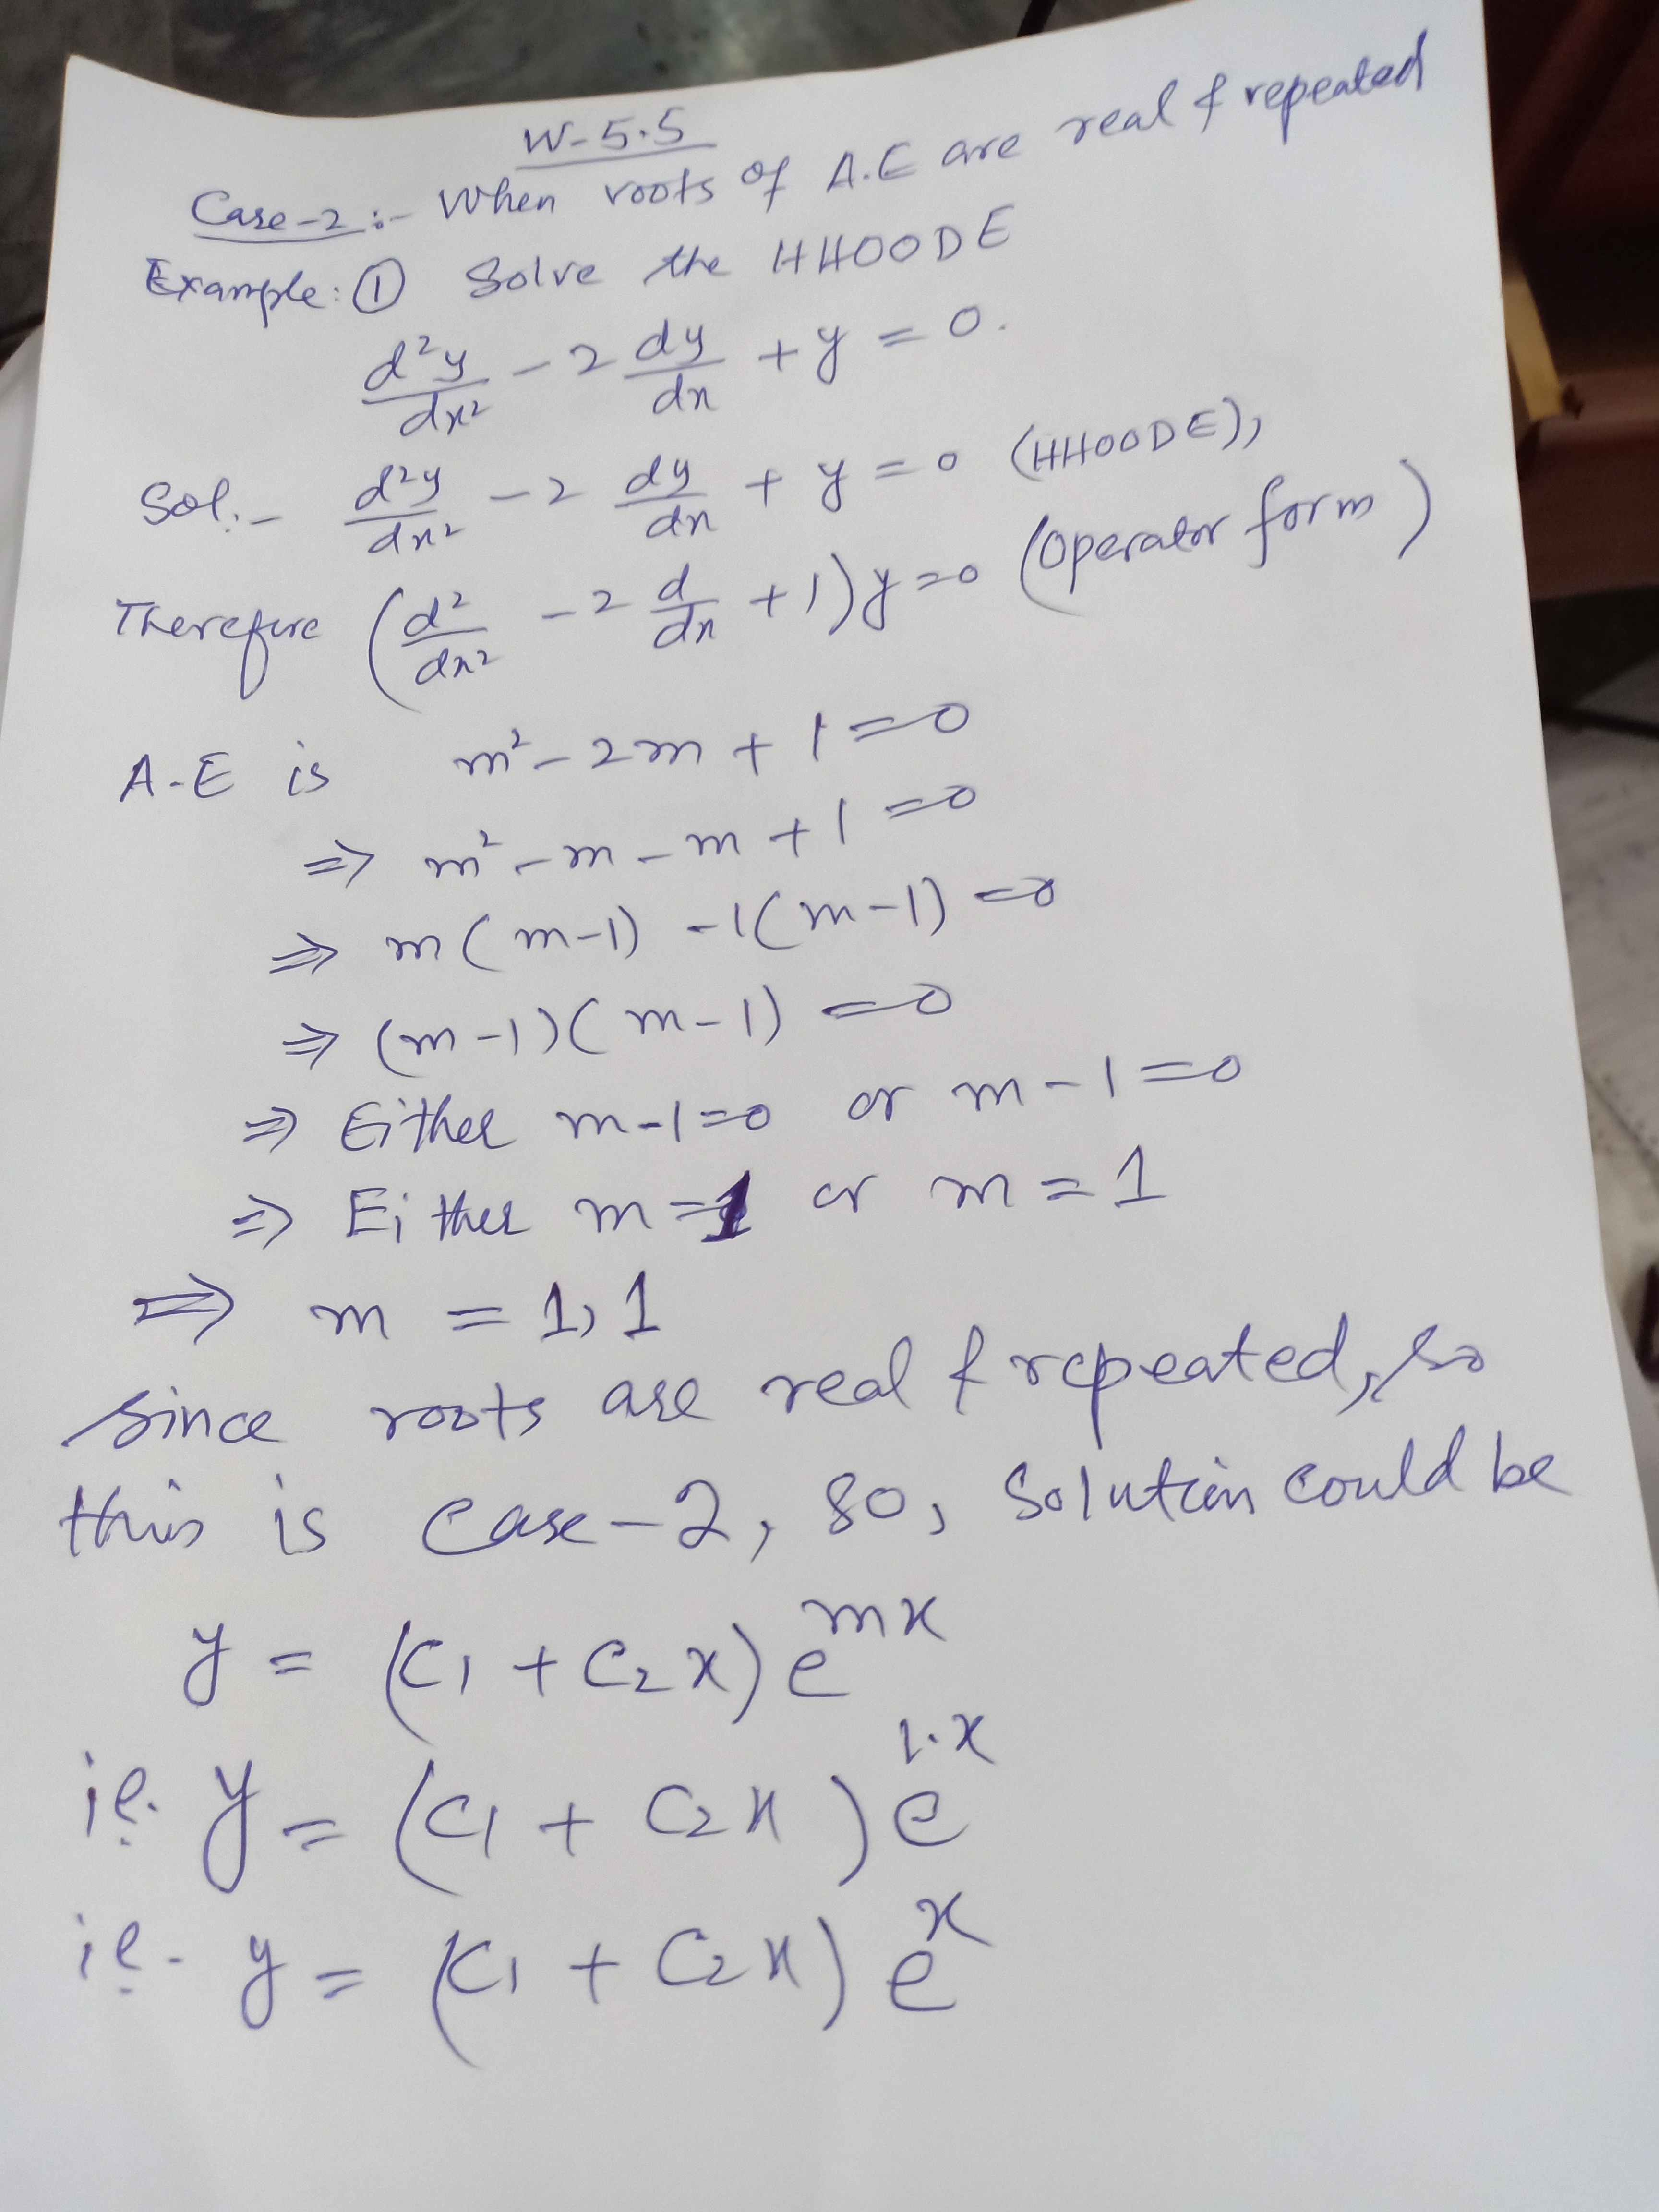 W-5.5
Case-2:- When roots of A.E are real & repeated
Example: ① Solve the HHOODE
d²y/dx² - 2 dy/dx + y = 0.
Sol:- d²y/dx² - 2 dy/dx + y = 0 (HHOODE),
Therefore (d²/dx² - 2 d/dx + 1) y = 0 (Operator form)
A-E is m² - 2m + 1 = 0
⇒ m² - m - m + 1 = 0
⇒ m(m-1) -1(m-1) = 0
⇒ (m-1)(m-1) = 0
⇒ Either m-1=0 or m-1=0
⇒ Either m=1 or m=1
⇒ m = 1, 1
Since roots are real & repeated, so
this is case-2, so, Solution could be
y = (C₁ + C₂x) e^{mx}
i.e. y = (C₁ + C₂x) e^{1.x}
i.e. y = (C₁ + C₂x) e^{x}